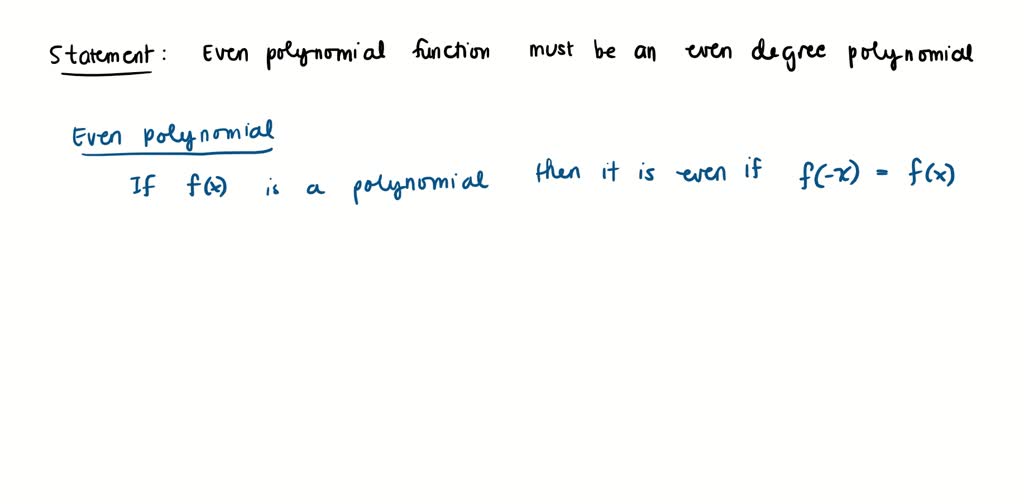 Statement: Even polynomial function must be an even degree polynomial
Even polynomial
If f(x) is a polynomial then it is even if f(-x) = f(x)